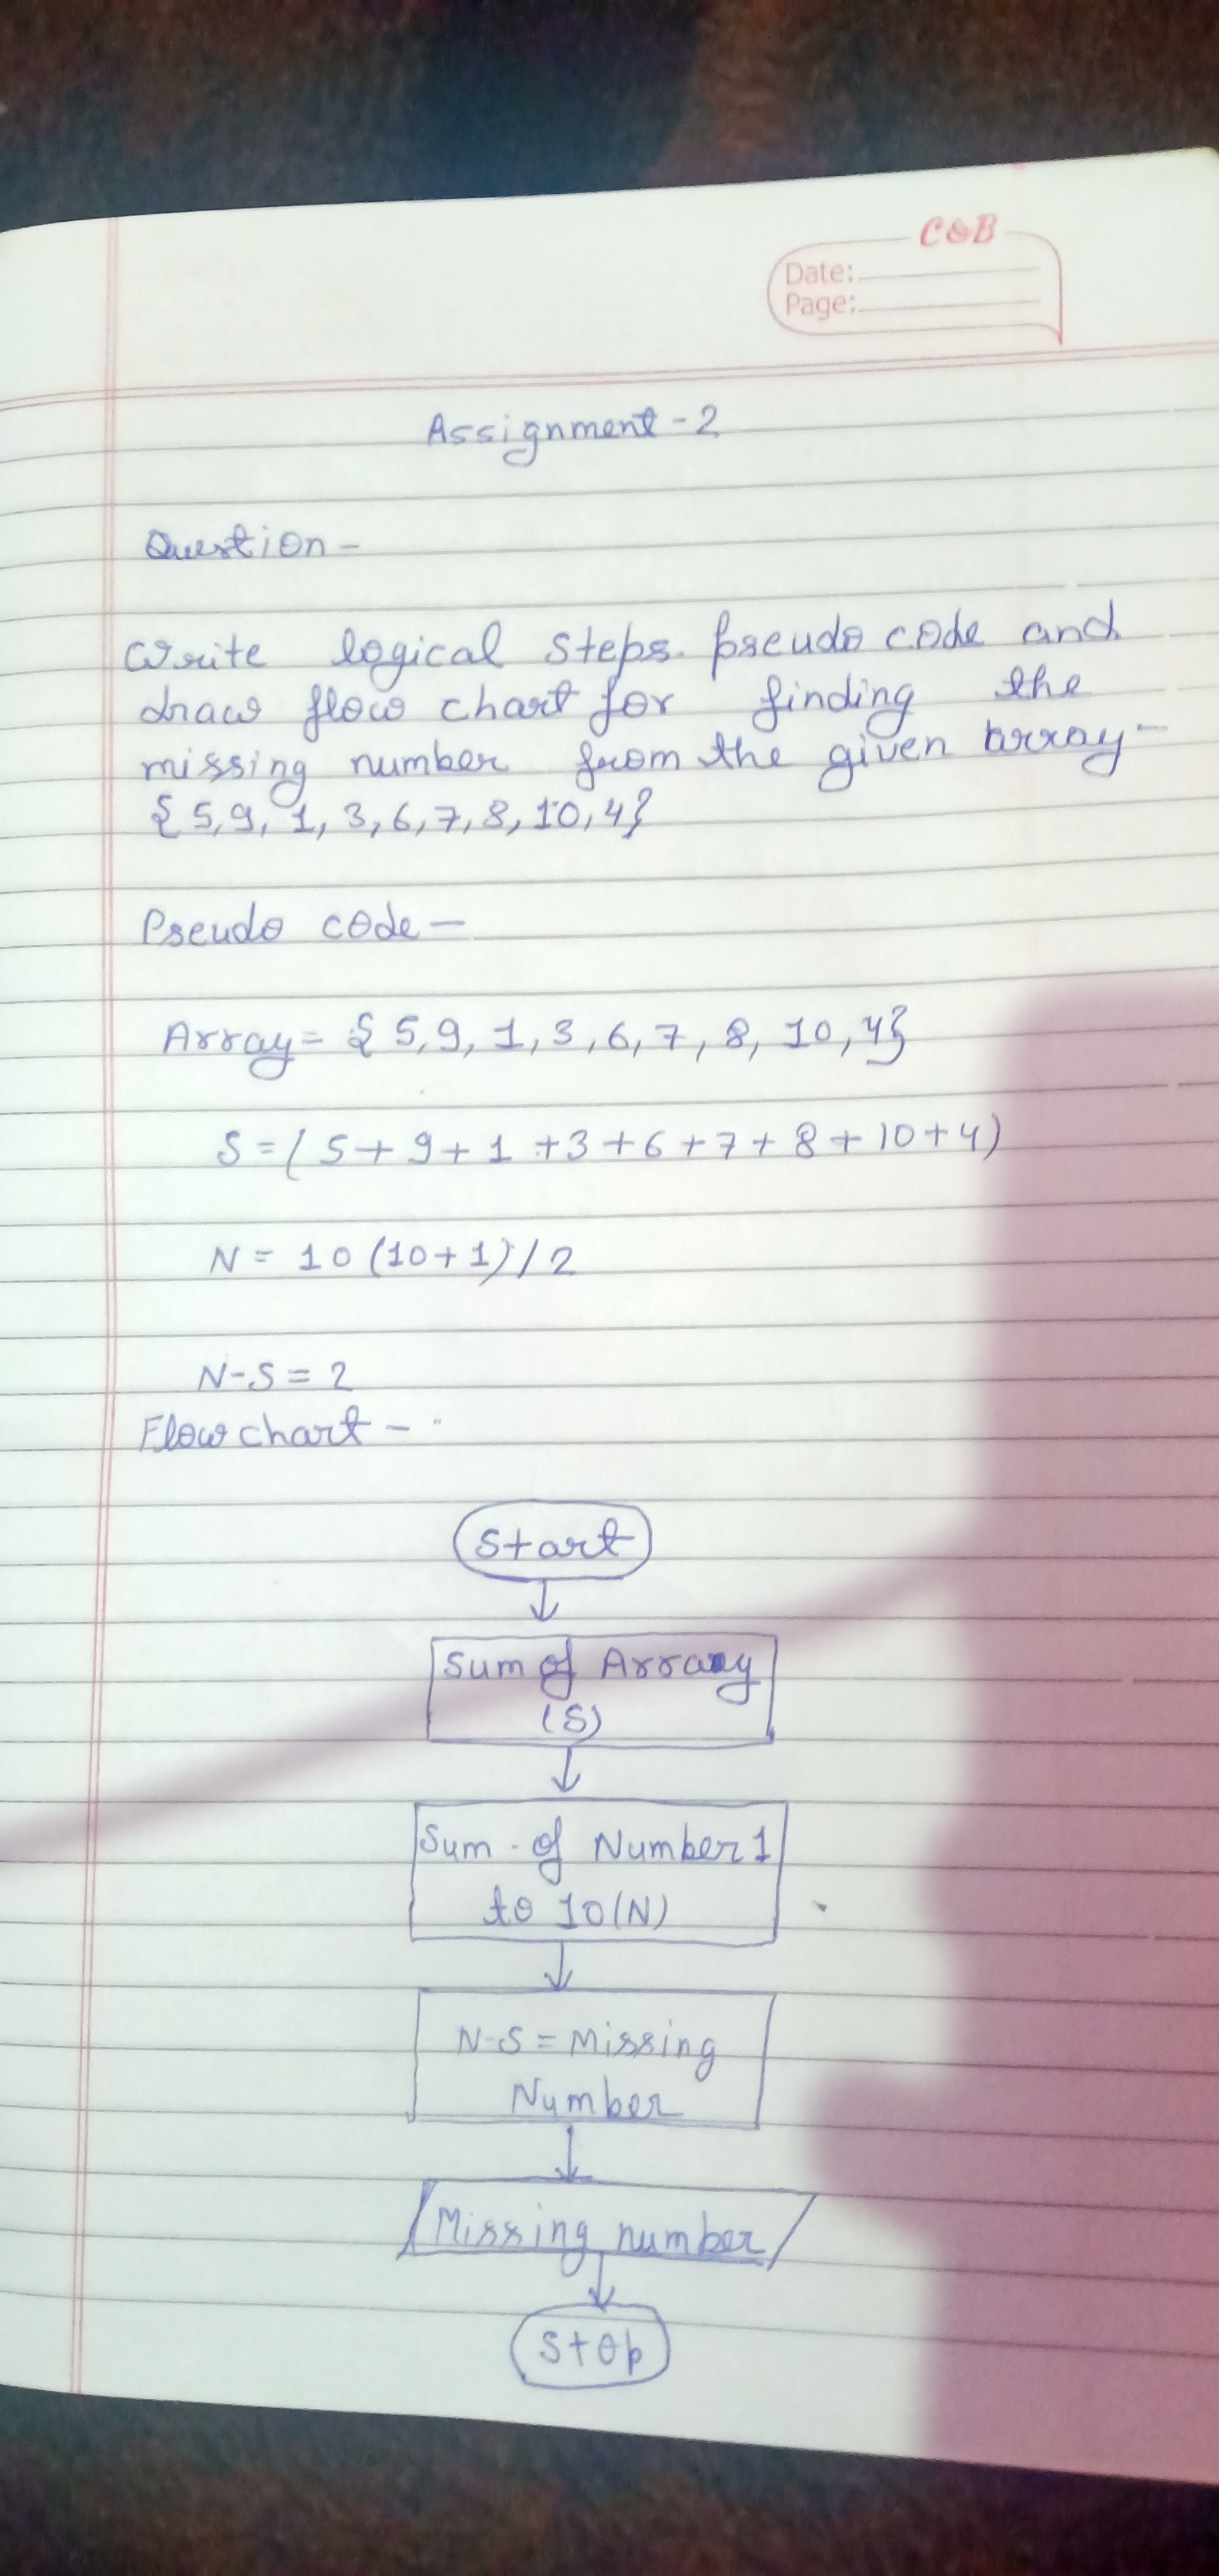 C&B
Date:
Page:
Assignment - 2
Question -
Write logical steps. pseudo code and
draw flow chart for finding the
missing number from the given array -
{ 5, 9, 1, 3, 6, 7, 8, 10, 4}
Pseudo code -
Array = { 5, 9, 1, 3, 6, 7, 8, 10, 4}
S = ( 5 + 9 + 1 + 3 + 6 + 7 + 8 + 10 + 4 )
N = 10 (10 + 1) / 2
N - S = 2
Flow chart -
Start
Sum of Array
(S)
Sum of Number 1
to 10 (N)
N-S = Missing
Number
Missing number
Stop